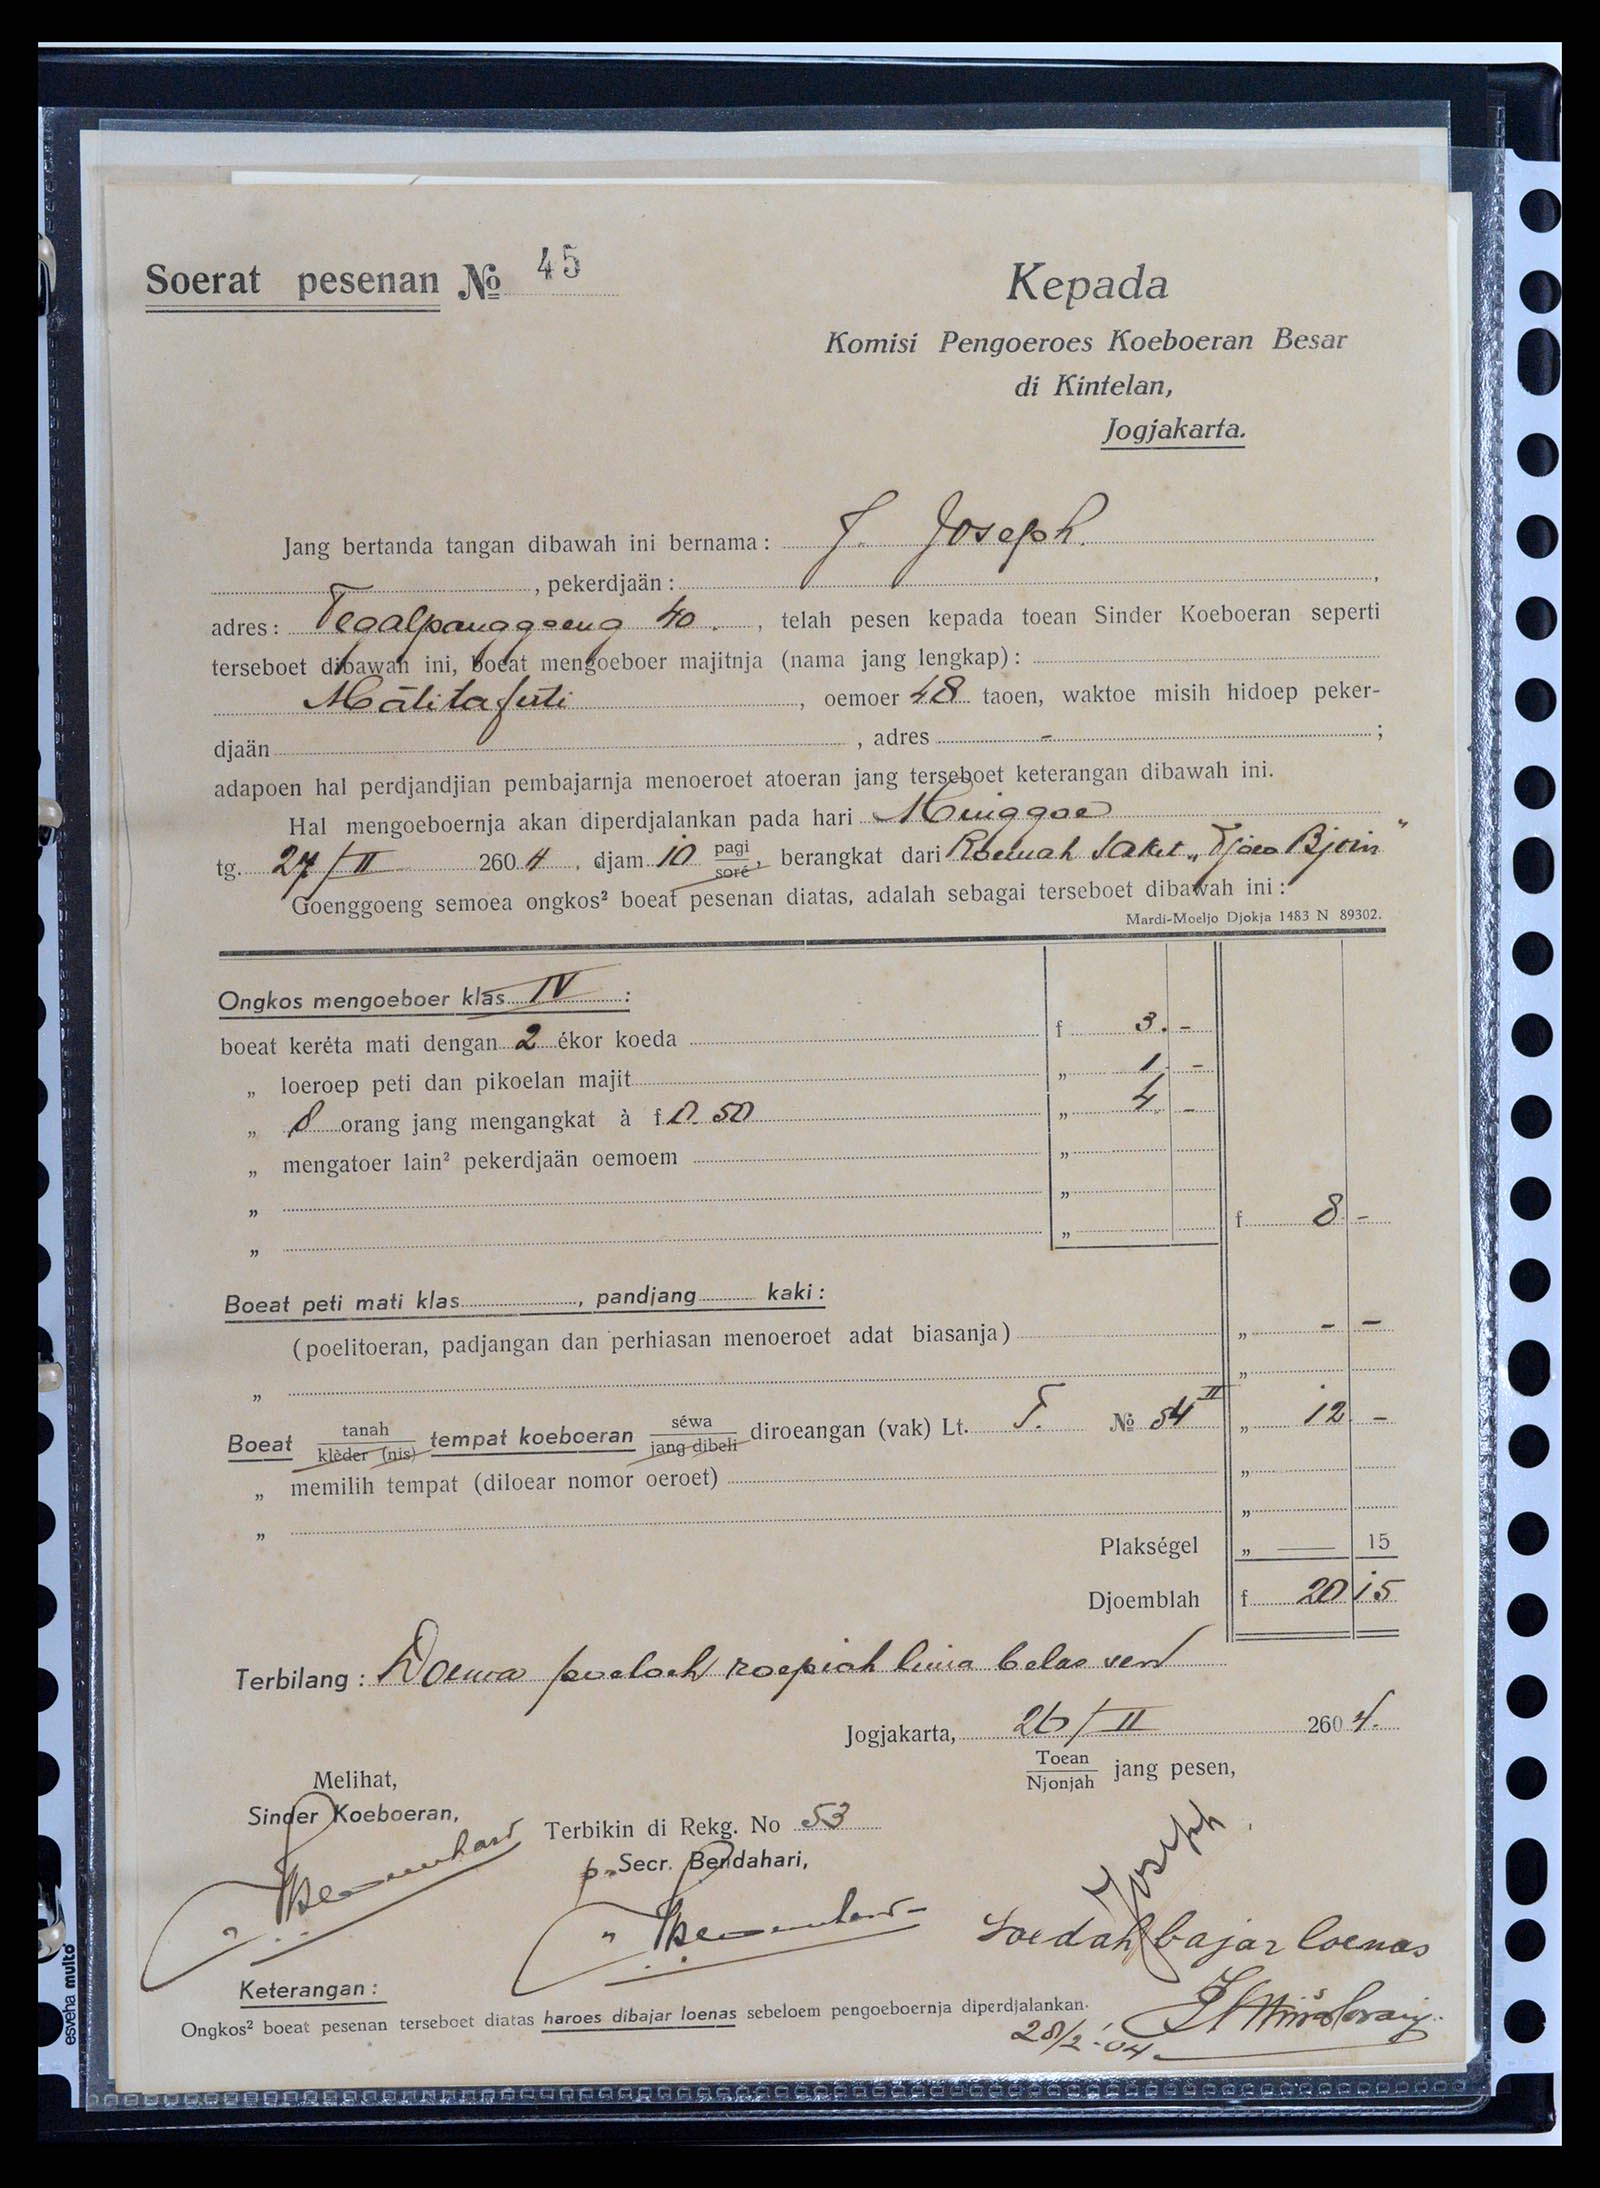 Soerat pesenan № 45
Kepada
Komisi Pengoeroes Koeboeran Besar
di Kintelan,
Jogjakarta.
Jang bertanda tangan dibawah ini bernama: J. Joseph.
, pekerdjaän: ,
adres: Tegalpanggoeng 40. , telah pesen kepada toean Sinder Koeboeran seperti
terseboet dibawah ini, boeat mengoeboer majitnja (nama jang lengkap):
, oemoer 48 taoen, waktoe misih hidoep peker-
djaän , adres - ;
adapoen hal perdjandjian pembajarnja menoeroet atoeran jang terseboet keterangan dibawah ini.
Hal mengoeboernja akan diperdjalankan pada hari Minggoe
tg. 27/II 2604, djam 10 pagi/soré, berangkat dari Roemah Saket „
Goenggoeng semoea ongkos² boeat pesenan diatas, adalah sebagai terseboet dibawah ini:
Mardi-Moeljo Djokja 1483 N 89302.
Ongkos mengoeboer klas IV :
boeat keréta mati dengan 2 ékor koeda f 3. -
„ loeroep peti dan pikoelan majit „ 1. -
„ 8 orang jang mengangkat à f 0.50 „ 4. -
„ mengatoer lain² pekerdjaän oemoem „
„ „
„ „ f 8 -
Boeat peti mati klas , pandjang kaki:
(poelitoeran, padjangan dan perhiasan menoeroet adat biasanja) „ - -
„ „
Boeat tanah/klèder (nis) tempat koeboeran séwa/jang dibeli diroeangan (vak) Lt. J. № 54 II „ 12 -
„ memilih tempat (diloear nomor oeroet) „
„ „
Plakségel „ — 15
Djoemblah f 20 15
Terbilang: Doewa poeloeh roepiah lima belas sen
Jogjakarta, 26/II 2604.
Toean/Njonjah jang pesen,
Melihat,
Sinder Koeboeran,
Terbikin di Rekg. No 53
p. Secr. Bendahari,
Joseph
Soedah bajar loenas
Keterangan:
Ongkos² boeat pesenan terseboet diatas haroes dibajar loenas sebeloem pengoeboernja diperdjalankan.
28/2-'04
esveha multo